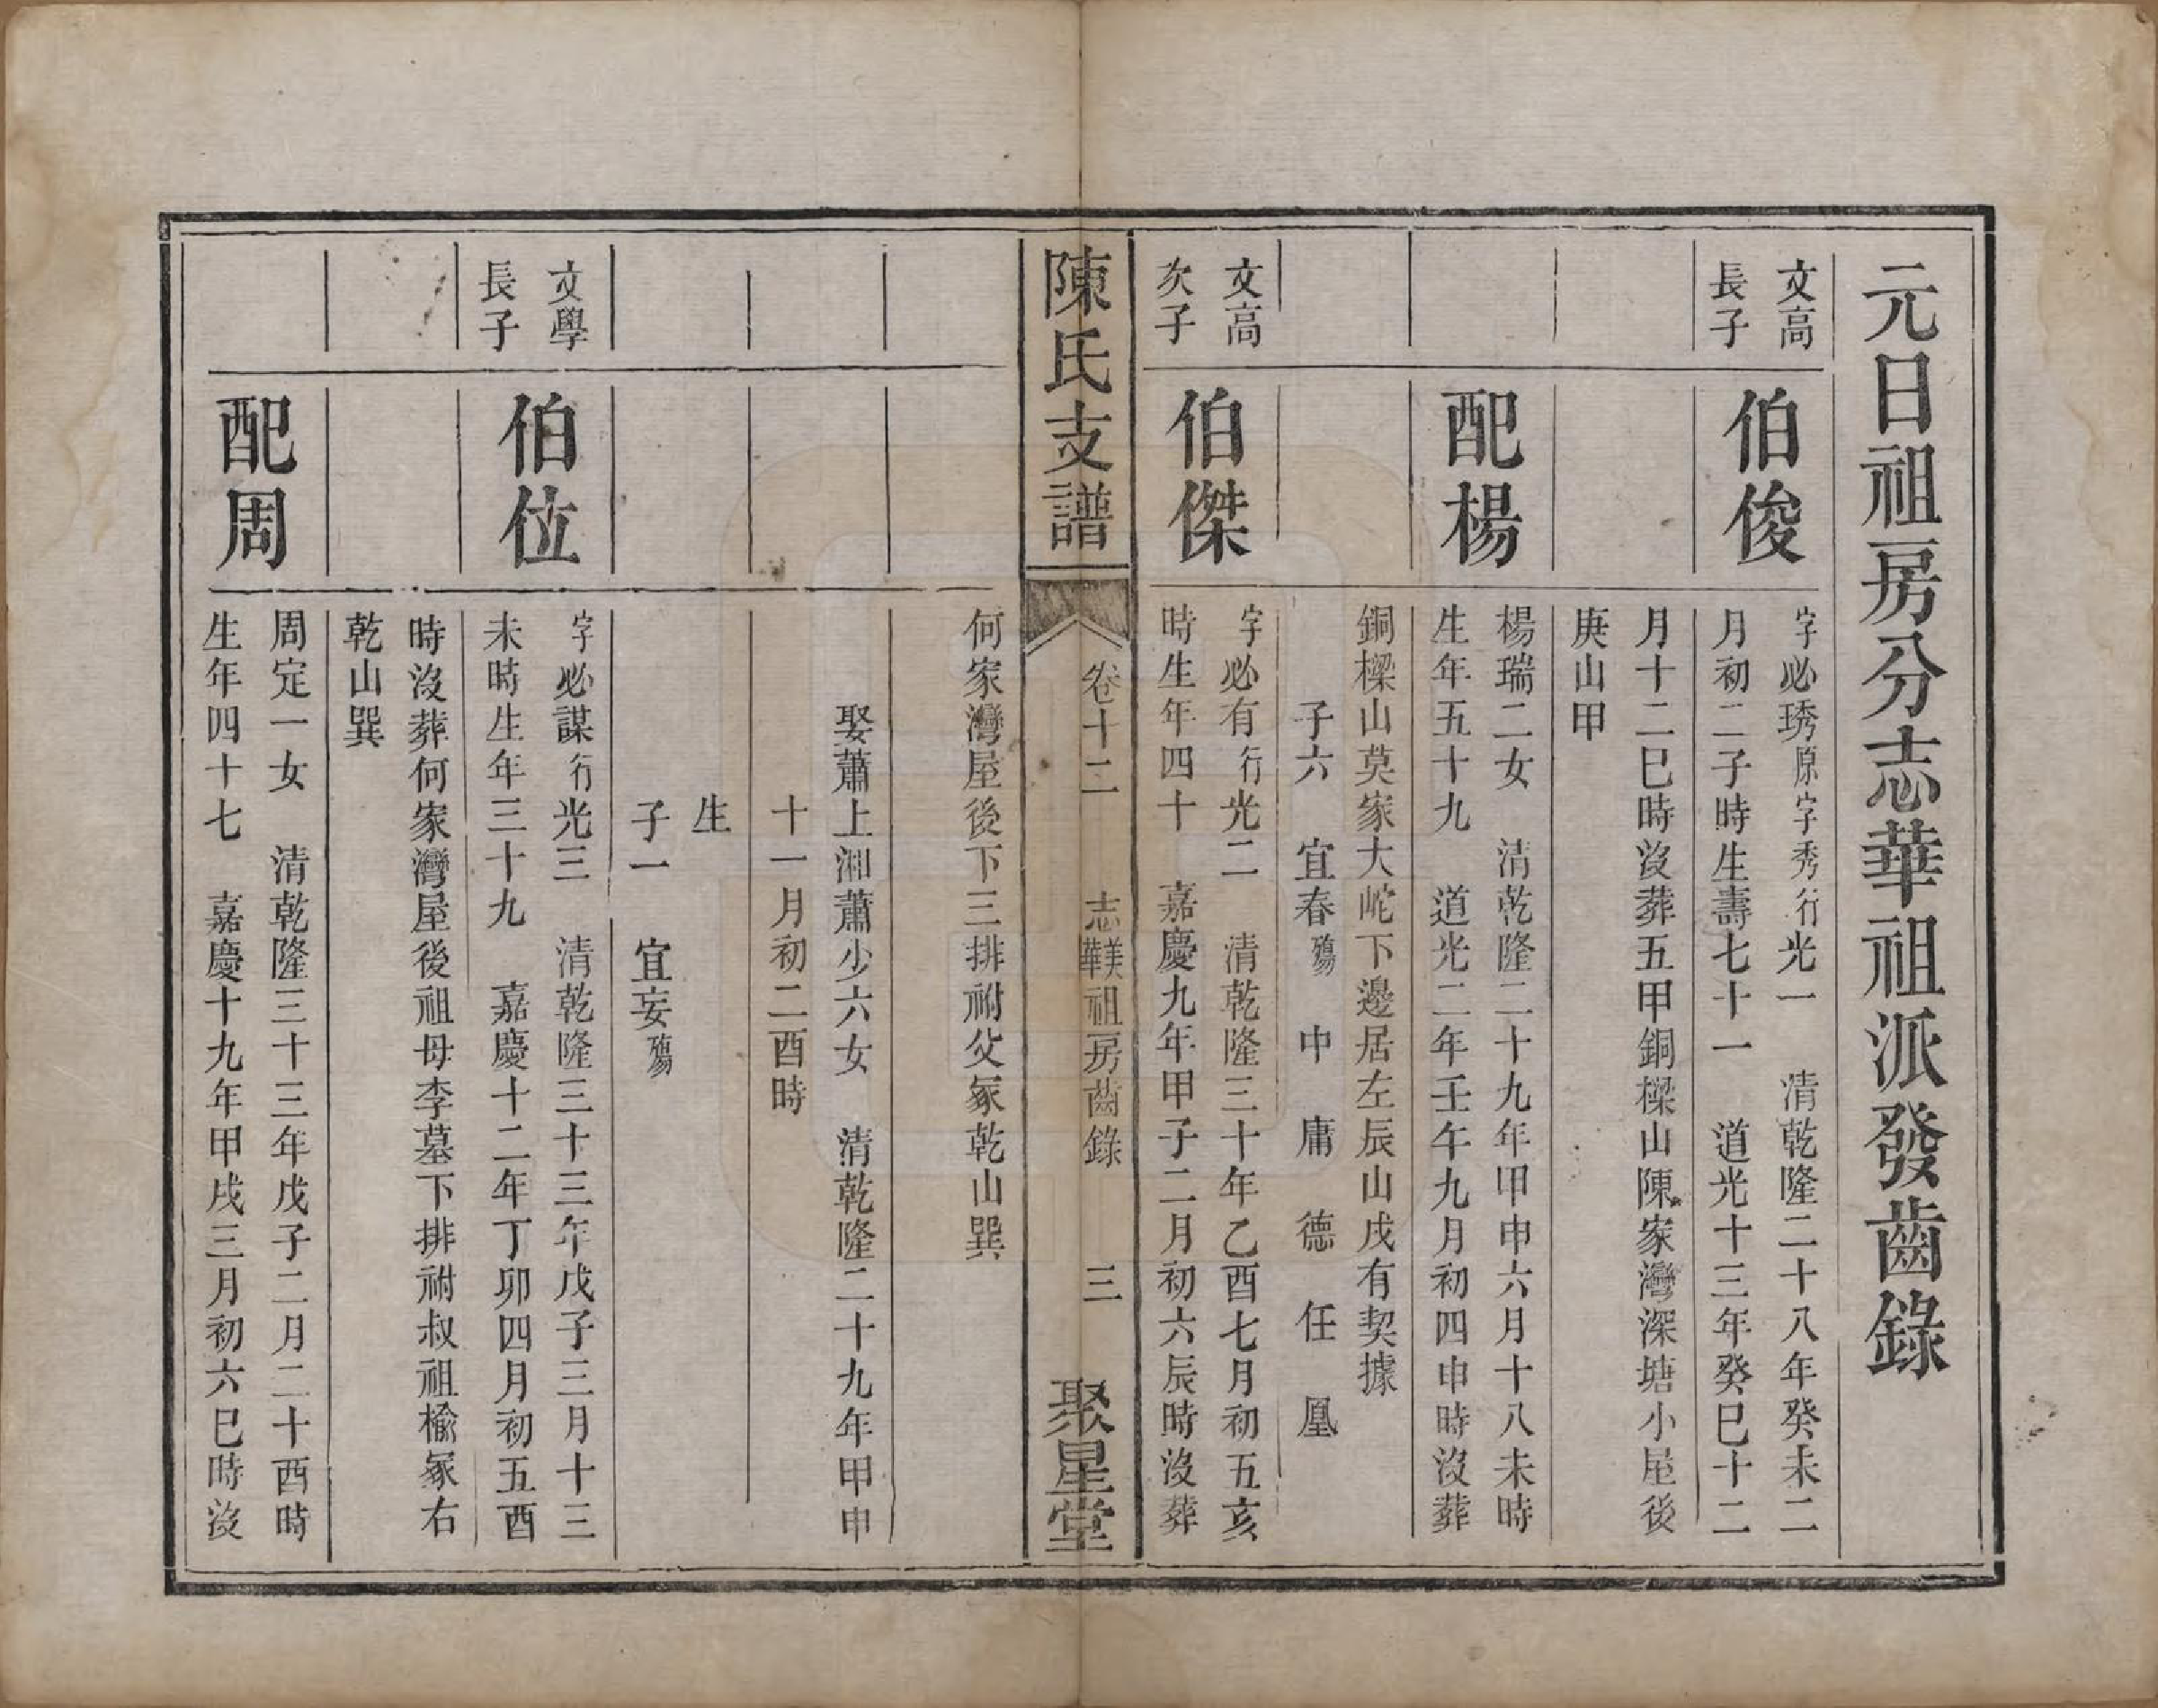 元日祖房分志華祖派發齒錄
文高
長子
伯俊
字必琇原字秀行光一　清乾隆二十八年癸未二
月初二子時生壽七十一　道光十三年癸巳十二
月十二巳時沒葬五甲銅樑山陳家灣深塘小屋後
庚山甲
配楊
楊瑞二女　清乾隆二十九年甲申六月十八未時
生年五十九　道光二年壬午九月初四申時沒葬
銅樑山莫家大岮下邊居左辰山戌有契據
子六　宜春殤　中　庸　德　任　凰
文高
次子
伯傑
字必有行光二　清乾隆三十年乙酉七月初五亥
時生年四十　嘉慶九年甲子二月初六辰時沒葬
陳氏支譜
卷十二　志美華祖房齒錄　三
聚星堂
何家灣屋後下三排祔父冢乾山巽
娶蕭上湘蕭少六女　清乾隆二十九年甲申
十一月初二酉時
生
子一　宜妄殤
文學
長子
伯位
字必謀行光三　清乾隆三十三年戊子三月十三
未時生年三十九　嘉慶十二年丁卯四月初五酉
時沒葬何家灣屋後祖母李墓下排祔叔祖榆冢右
乾山巽
配周
周定一女　清乾隆三十三年戊子二月二十酉時
生年四十七　嘉慶十九年甲戌三月初六巳時沒